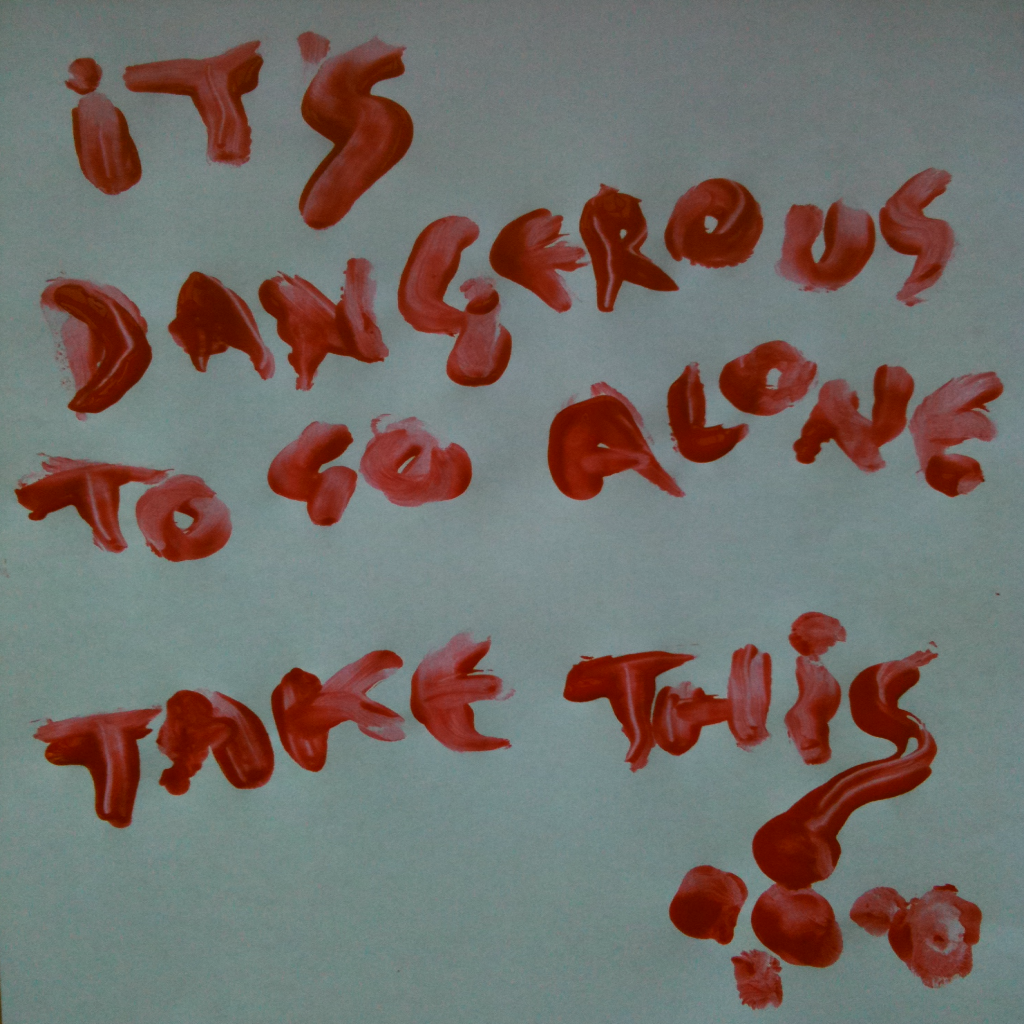 iT'S
DANGEROUS
TO GO ALONE
TAKE THiS